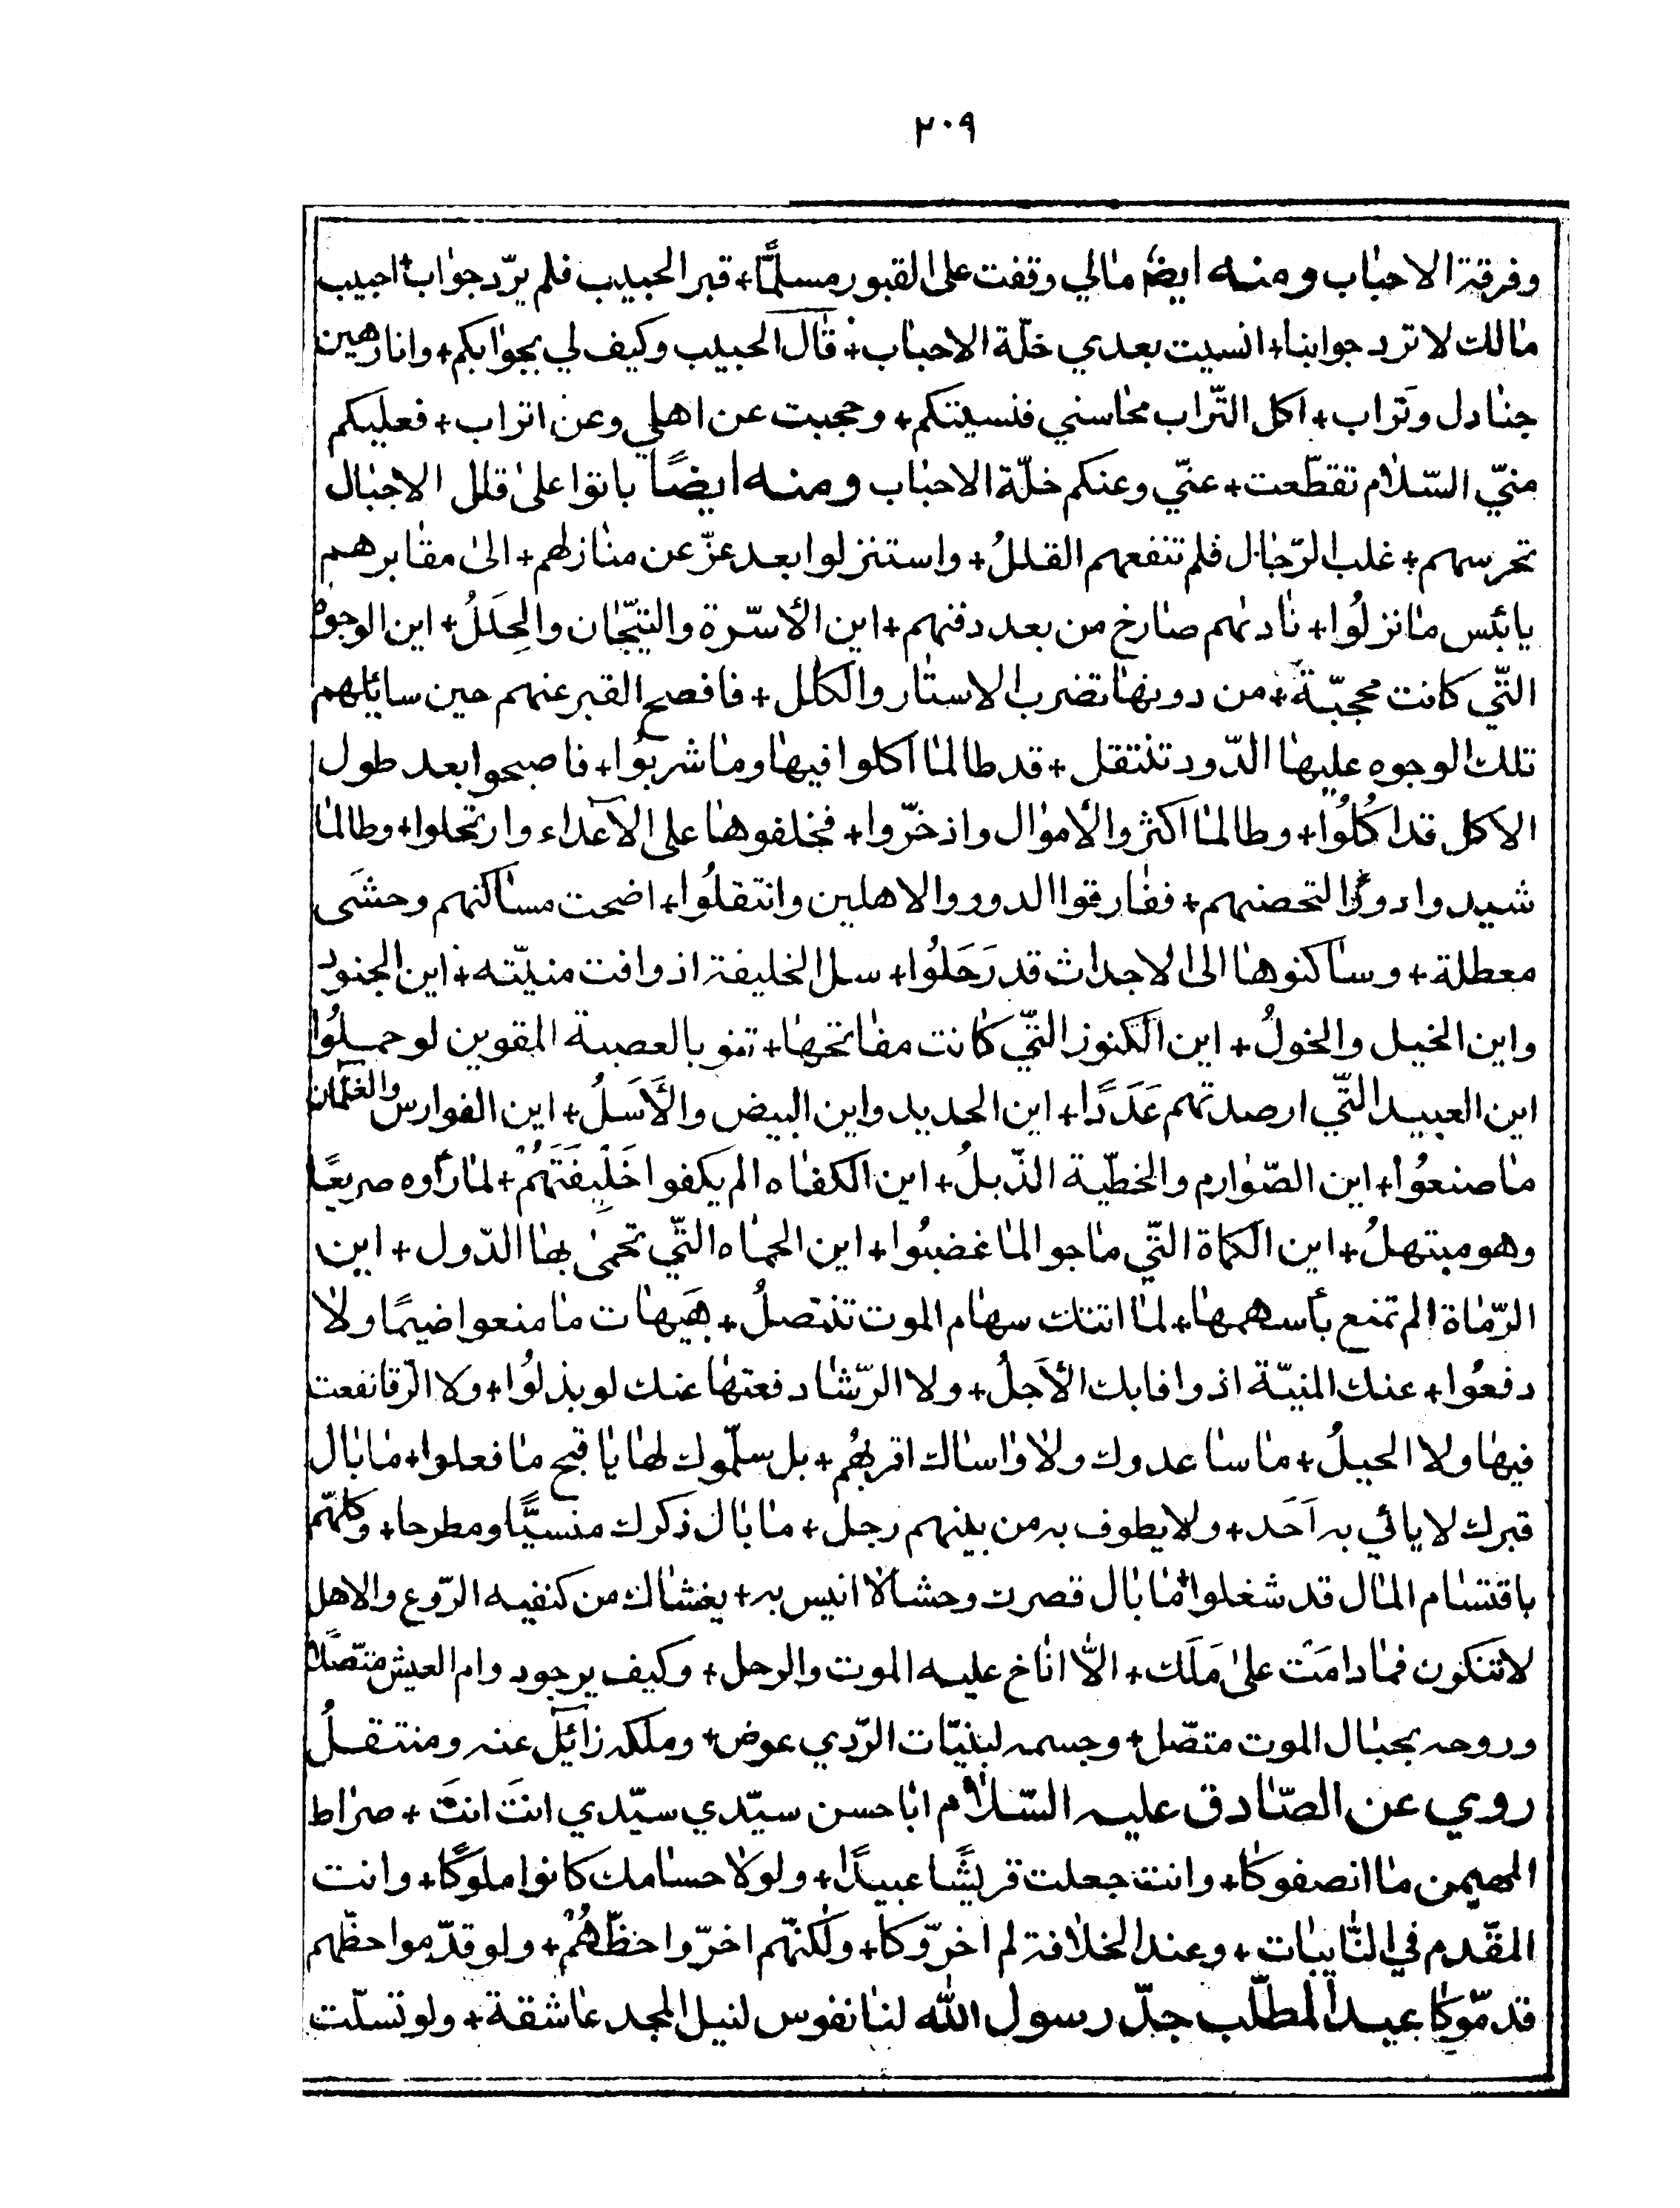 ٢٠٩
وفرقة الاحباب ومنه ايضا مالي وقفت على القبور مسلّمًا+ قبر الحبيب فلم يرّد جواب+ احبيب
مالك لا ترد جوابنا+ انسيت بعدي خلّة الاحباب+ قال الحبيب وكيف لي بجوابكم+ وانا رهين
جنادل وتراب+ اكل التّراب محاسني فنسيتكم+ وحجبت عن اهلي وعن اتراب+ فعليكم
منّي السّلام تقطّعت+ عنّي وعنكم خلّة الاحباب ومنه ايضًا باتوا على قلل الاجبال
تحرسهم+ غلب الرّجال فلم تنفعهم القللُ+ واستنزلوا بعد عزّ عن منازلهم+ الى مقابرهم
يا بئس ما نزلُوا+ نادىهم صارخ من بعد دفنهم+ اين الأسّرة والتيّجان والحِلَلُ+ اين الوجوه
التّي كانت محجبّة+ من دونها تضرب الاستار والكلل+ فافصح القبر عنهم حين سايلهم
تلك الوجوه عليها الدّود تنتقل+ قد طالما اكلوا فيها وما شربُوا+ فاصبحوا بعد طول
الاكل قد اكُلُوا+ وطالما اكثر والأموال واذخّروا+ فخلفوها على الآعداء وارتحلوا+ وطالما
شيدوا دورًا لتحصنهم+ ففارقوا الدور والاهلين وانتقلُوا+ اضحت مساكنهم وحشَى
معطلة+ وساكنوها الى الاجداث قد رَحَلُوا+ سل الخليفة اذ وافت منيّته+ اين الجنود
واين الخيل والخولُ+ اين الكنوز التّي كانت مفاتحها+ تنو بالعصبة المقوين لو حملُوا
اين العبيد التّي ارصدتهم عَدَدًا+ اين الحديد واين البيض والأَسَلُ+ اين الفوارس والغلمان
ما صنعُوا+ اين الصّوارم والخطّية الذّبلُ+ اين الكفاه الم يكفوا خَلِيفَتَهُمْ+ لما رأوه صريعًا
وهو مبتهلُ+ اين الكماة التّي ماجوا لما غضبُوا+ اين الحماه التّي تحمى بها الدّول+ اين
الرّماة الم تمنع بأسهمها+ لما اتتك سهام الموت تنتصلُ+ هَيهات ما منعوا ضيمًا ولا
دفعُوا+ عنك المنيّة اذ وافا بك الأَجلُ+ ولا الرّشا دفعتها عنك لو بذلُوا+ ولا الرّقا نفعت
فيها ولا الحيلُ+ ما ساعدوك ولا واساك اقربهُم+ بل سلّموك لها يا قبح ما فعلوا+ ما بال
قبرك لا يائي به اَحَد+ ولا يطوف به من بينهم رجل+ ما بال ذكرك منسيًّا ومطرحا+ وكلهّم
باقتسام المال قد شغلوا+ ما بال قصرت وحشا لا انيس به+ يغشاك من كنفيه الرّوع والاهل
لا تنكرن فما دامَتْ على مَلَك+ الّا اناخ عليه الموت والرحل+ وكيف يرجو دوام العيش متصّلا
وروحه بحبال الموت متصّل+ وجسمه لبنيّات الرّدي عوض+ وملكه زآئل عنه ومنتقلُ
روي عن الصّادق عليه السّلام ابا حسن سيّدي سيّدي انتَ انتَ + صراط
المهيمن ما انصفوكا+ وانت جعلت قريشًا عبيدًا+ ولولا حسامك كانوا ملوكًا+ وانت
المقّدم في النّايبات+ وعند الخلافة لم اخرّوكا+ ولكنهّم اخرّوا حظّهُمْ+ ولو قدّموا حظّهم
قدمّوكا عبد المطلّب جدّ رسول الله لنا نفوس لنيل المجد عاشقة+ ولو تسلّت